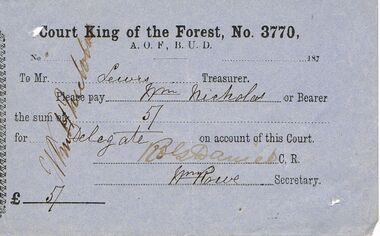 Court King of the Forest, No. 3770,
A. O. F., B. U. D.
No 187
To Mr. Lewis Treasurer.
Please pay Wm Nicholas or Bearer
the sum of 5/
for Delegate on account of this Court.
R G Daniel C. R.
Wm Rowe Secretary.
£ 5/
Wm Nicholas